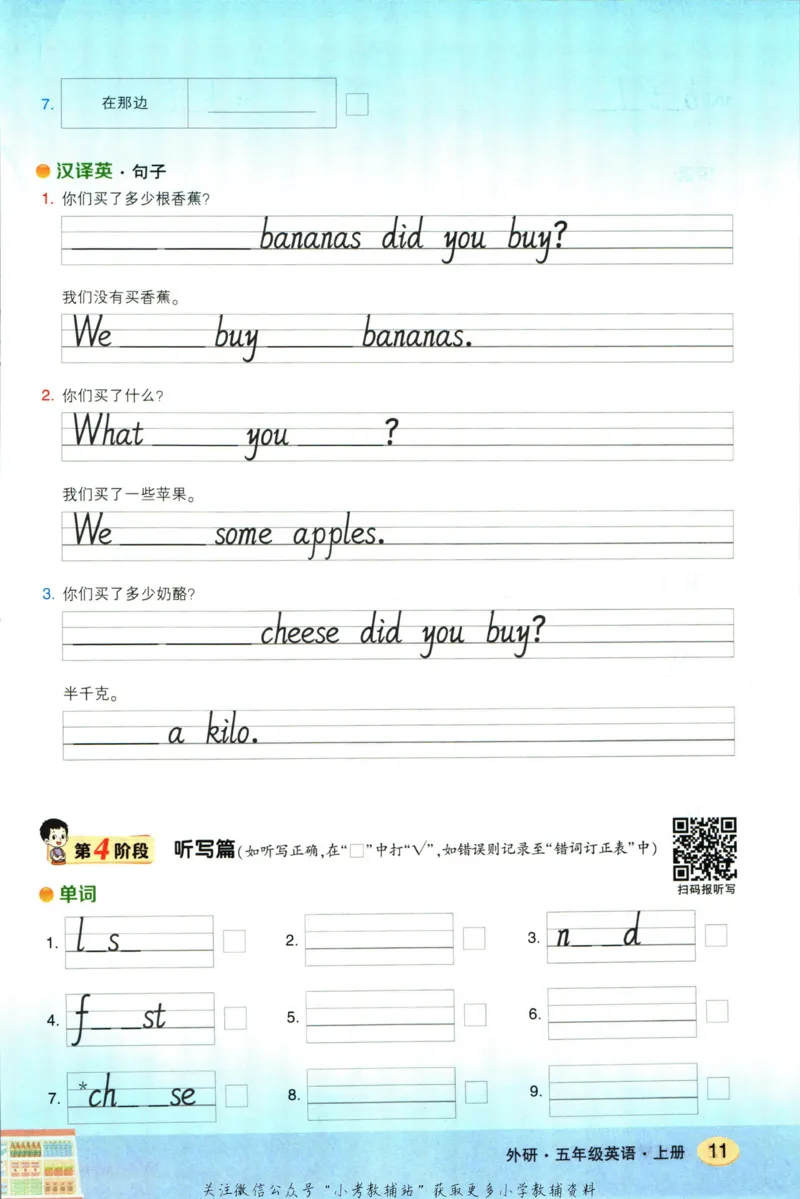 7. 在那边 ________
汉译英·句子
1. 你们买了多少根香蕉?
________ ________ bananas did you buy?
我们没有买香蕉。
We ________ buy ________ bananas.
2. 你们买了什么?
What ________ you ________ ?
我们买了一些苹果。
We ________ some apples.
3. 你们买了多少奶酪?
________ ________ cheese did you buy?
半千克。
________ a kilo.
第4阶段 听写篇(如听写正确,在“□”中打“√”,如错误则记录至“错词订正表”中)
扫码报听写
单词
1. l_s_ 2. 3. n_ _d
4. f_ _st 5. 6.
7. *ch_ _se 8. 9.
外研·五年级英语·上册 11
关注微信公众号“小考教辅站”获取更多小学教辅资料